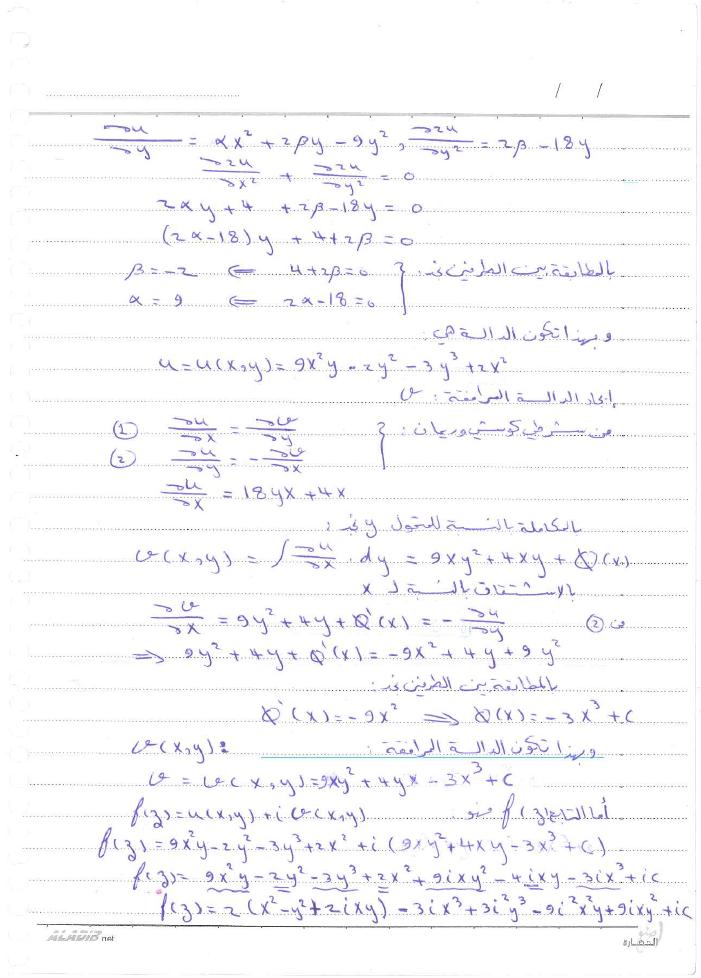 / /
∂u/∂y = αx² + 2βy - 9y² , ∂2u/∂y² = 2β - 18y
∂2u/∂x² + ∂2u/∂y² = 0
2αy + 4 + 2β - 18y = 0
(2α - 18)y + 4 + 2β = 0
بالمطابقة بين الطرفين نجد: } 4 + 2β = 0 ⇐ β = -2
2α - 18 = 0 ⇐ α = 9
وبهذا تكون الدالة هي:
u = u(x,y) = 9x²y - 2y² - 3y³ + 2x²
إيجاد الدالة المرافقة: v
من شرطي كوشي وريمان: } ∂u/∂x = ∂v/∂y ①
∂u/∂y = -∂v/∂x ②
∂u/∂x = 18yx + 4x
بالمكاملة بالنسبة للمتحول y نجد:
v(x,y) = ∫ ∂u/∂x . dy = 9xy² + 4xy + Q(x)
بالاشتقاق بالنسبة لـ x
∂v/∂x = 9y² + 4y + Q'(x) = -∂u/∂y من ②
⇒ 9y² + 4y + Q'(x) = -9x² + 4y + 9y²
بالمطابقة بين الطرفين نجد:
Q'(x) = -9x² ⇒ Q(x) = -3x³ + c
وبهذا تكون الدالة المرافقة: v(x,y):
v = v(x,y) = 9xy² + 4yx - 3x³ + c
أما التابع f(z) فهو: f(z) = u(x,y) + i v(x,y)
f(z) = 9x²y - 2y² - 3y³ + 2x² + i (9xy² + 4xy - 3x³ + c)
f(z) = 9x²y - 2y² - 3y³ + 2x² + 9ixy² - 4ixy - 3ix³ + ic
f(z) = 2(x² - y² + 2ixy) - 3ix³ + 3i²y³ - 9i²x²y + 9ixy² + ic
ALADIB.net
الحضارة